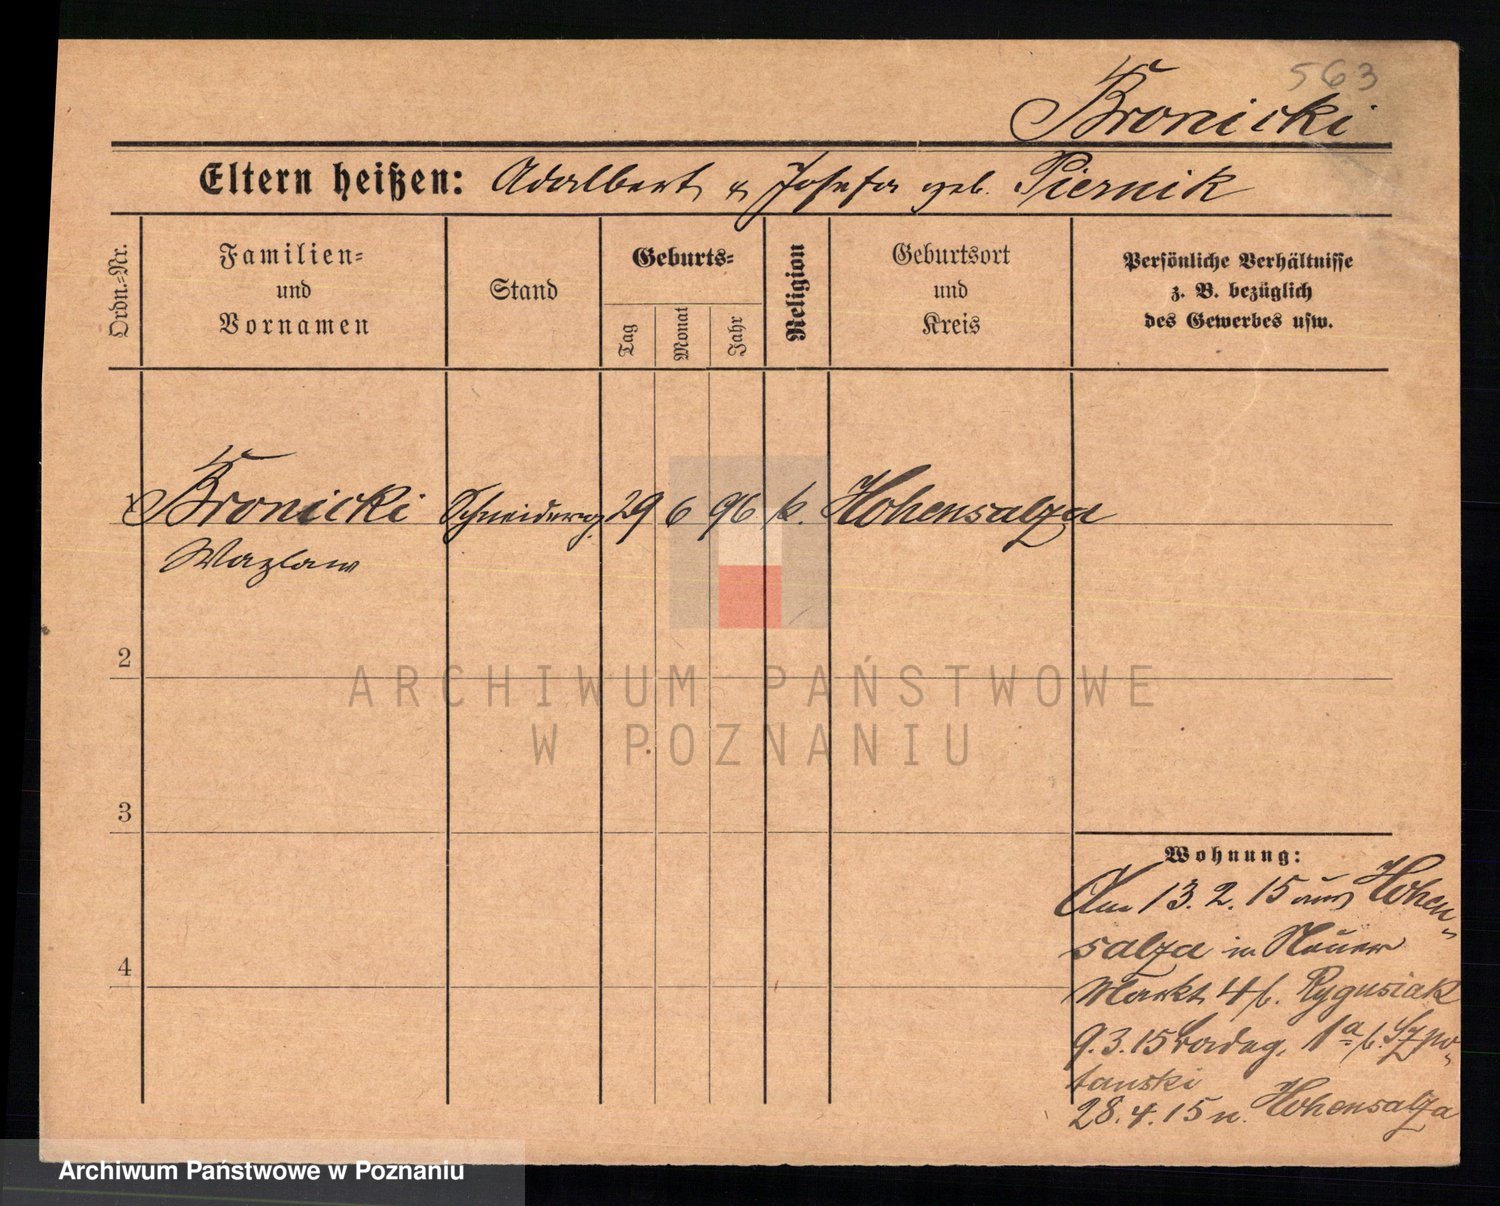 563
Kronicki
Eltern heißen: Adalbert u Josefa geb. Piernik
Ordn.-Nr.
Familien-
und
Vornamen
Stand
Geburts-
Tag
Monat
Jahr
Religion
Geburtsort
und
Kreis
Persönliche Verhältnisse
z. B. bezüglich
des Gewerbes usw.
1 Kronicki Schneiderg. 29 6 96 k. Hohensalza
Wazlaw
2
ARCHIWUM PAŃSTWOWE
W POZNANIU
3
Wohnung:
Am 13. 2. 15 aus Hohen-
salza in Neuer
Markt 4 b. Rygusiak
9. 3. 15 1a b. Szpo-
tanski
28. 4. 15 n. Hohensalza
4
Archiwum Państwowe w Poznaniu